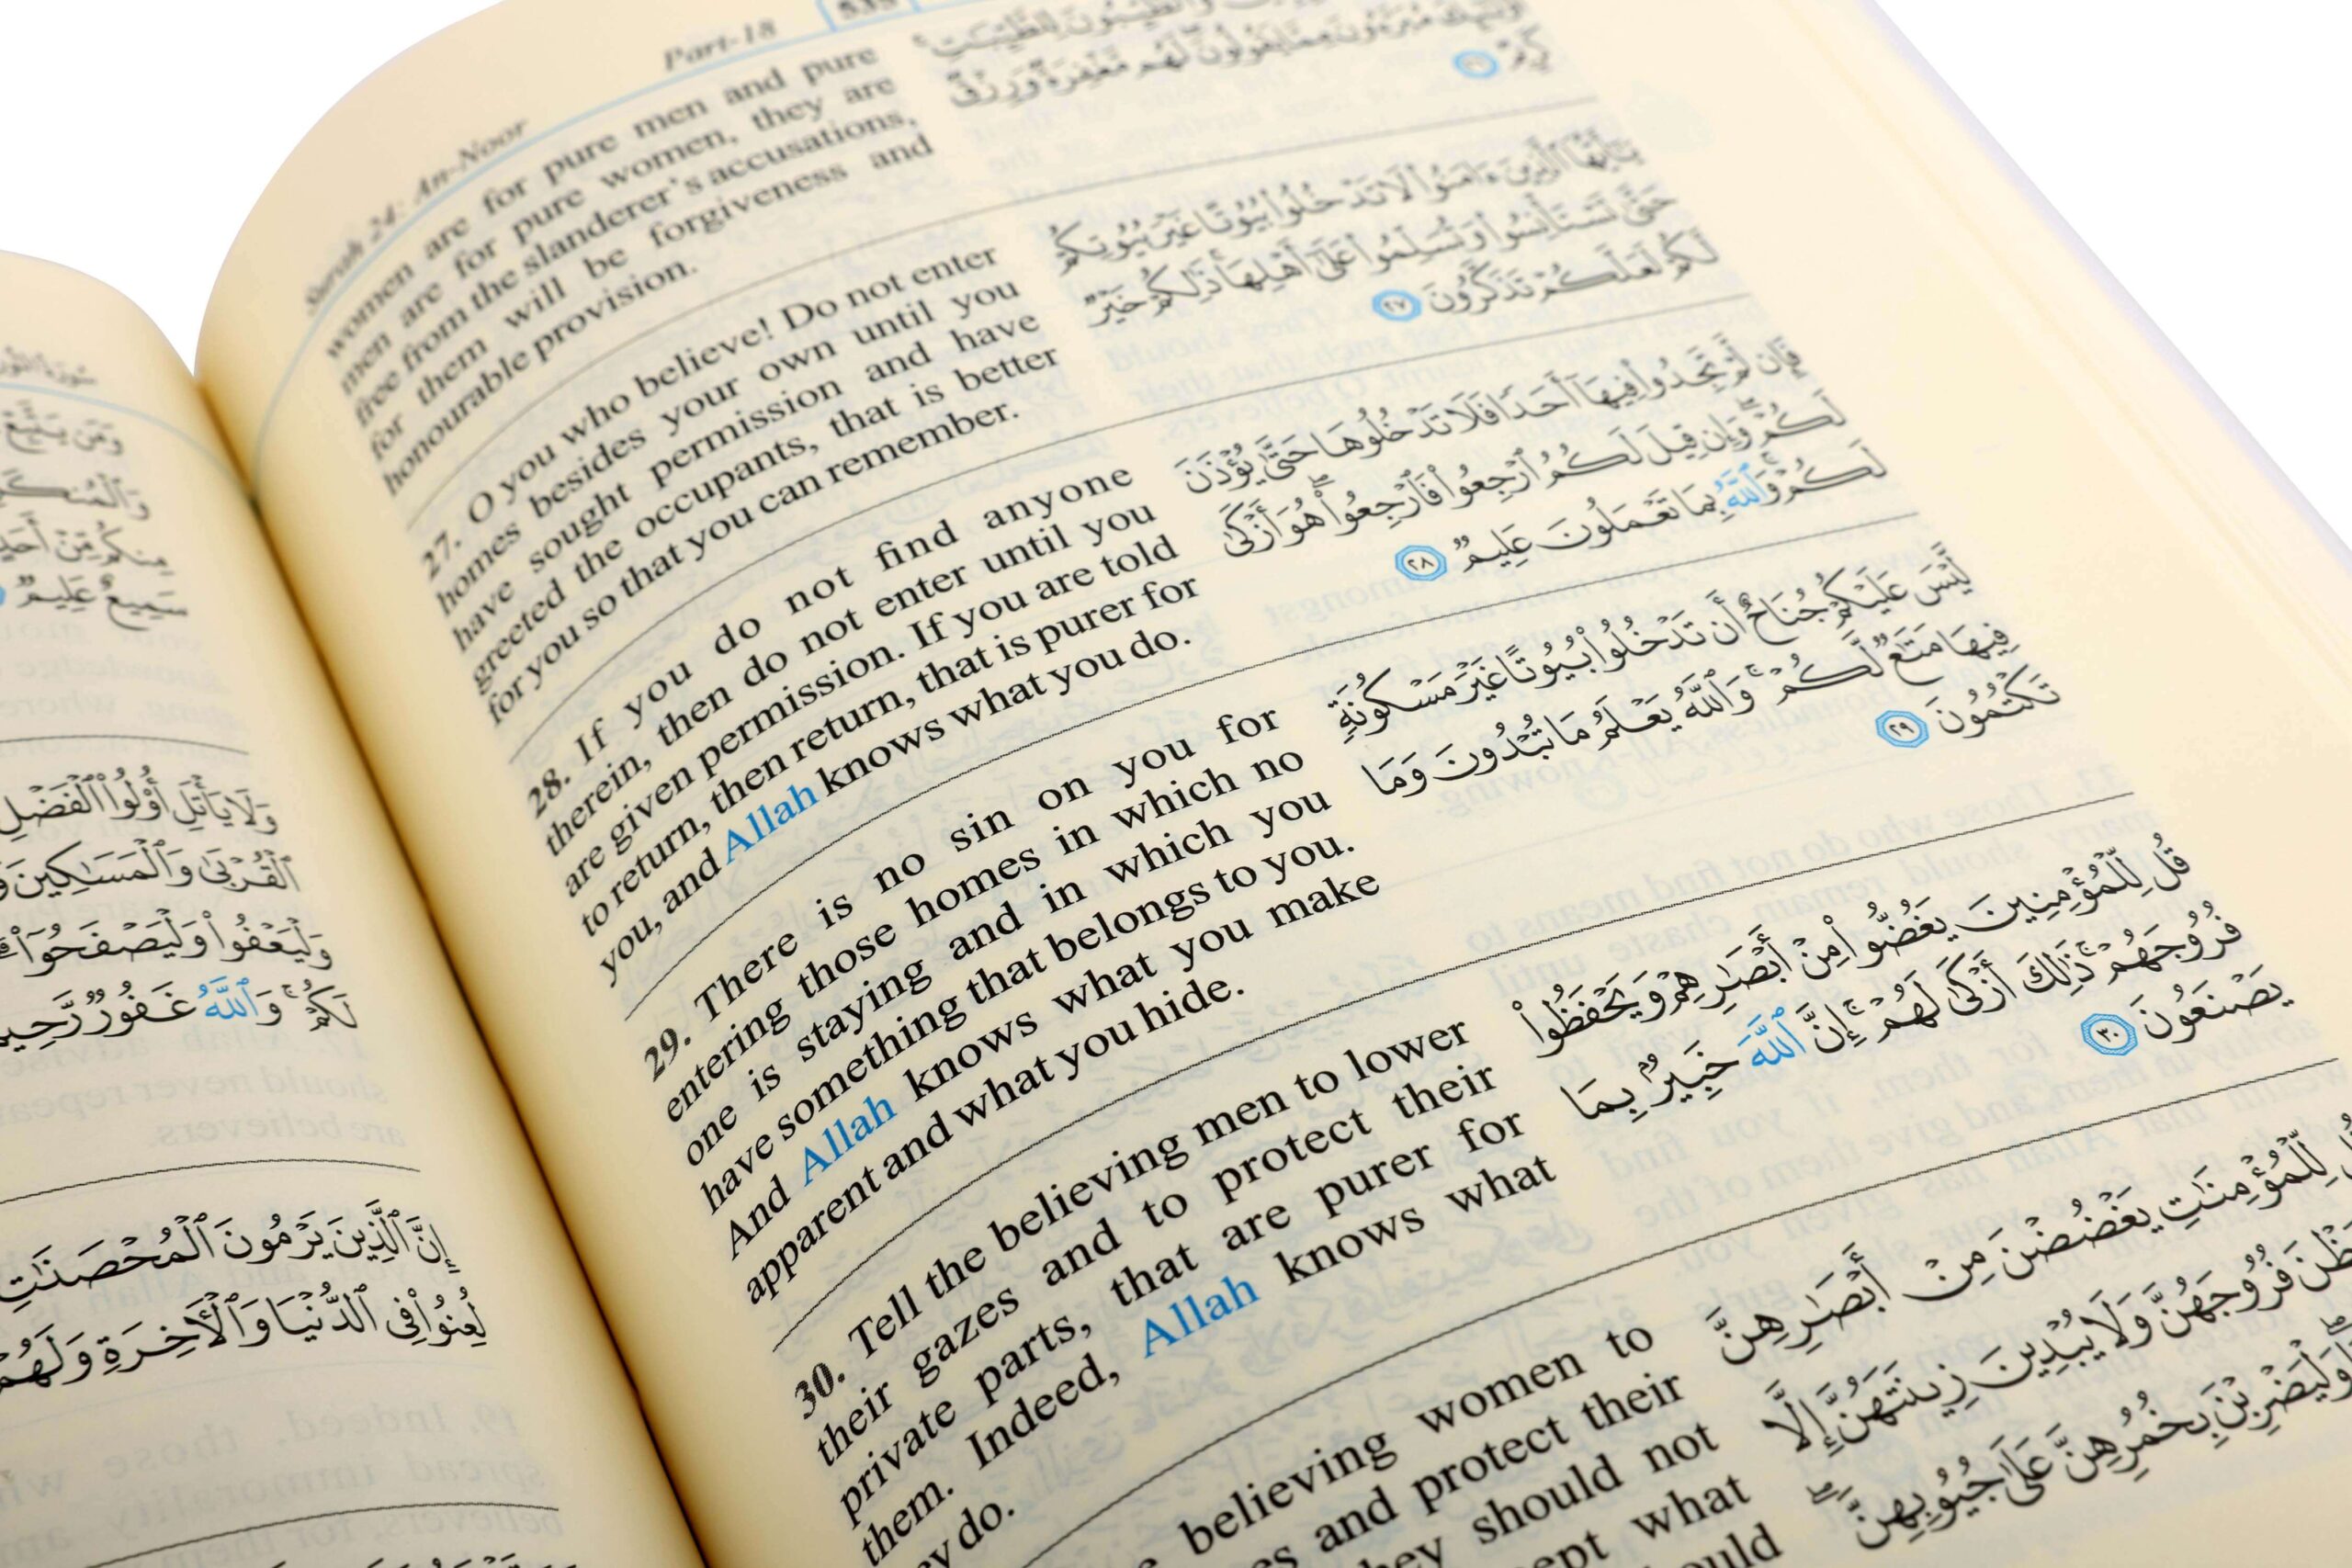 سورة النور
وَمَن يَتَّبِعْ
وَٱلْمُنكَرِ
مِنكُم مِّنْ أَحَدٍ
سَمِيعٌ عَلِيمٌ
وَلَا يَأْتَلِ أُو۟لُوا۟ ٱلْفَضْلِ
ٱلْقُرْبَىٰ وَٱلْمَسَـٰكِينَ
وَلْيَعْفُوا۟ وَلْيَصْفَحُوٓا۟
لَكُمْ ۗ وَٱللَّهُ غَفُورٌ رَّحِيمٌ
إِنَّ ٱلَّذِينَ يَرْمُونَ ٱلْمُحْصَنَـٰتِ
لُعِنُوا۟ فِى ٱلدُّنْيَا وَٱلْـَٔاخِرَةِ وَلَهُمْ
Surah 24: An-Noor
Part-18
535
women are for pure men and pure
men are for pure women, they are
free from the slanderer's accusations,
for them will be forgiveness and
honourable provision.
وَٱلطَّيِّبُونَ لِلطَّيِّبَـٰتِ ۚ
أُو۟لَـٰٓئِكَ مُبَرَّءُونَ مِمَّا يَقُولُونَ ۖ لَهُم مَّغْفِرَةٌ وَرِزْقٌ
كَرِيمٌ ٢٦
27. O you who believe! Do not enter
homes besides your own until you
have sought permission and have
greeted the occupants, that is better
for you so that you can remember.
يَـٰٓأَيُّهَا ٱلَّذِينَ ءَامَنُوا۟ لَا تَدْخُلُوا۟ بُيُوتًا غَيْرَ بُيُوتِكُمْ
حَتَّىٰ تَسْتَأْنِسُوا۟ وَتُسَلِّمُوا۟ عَلَىٰٓ أَهْلِهَا ۚ ذَٰلِكُمْ خَيْرٌ
لَّكُمْ لَعَلَّكُمْ تَذَكَّرُونَ ٢٧
28. If you do not find anyone
therein, then do not enter until you
are given permission. If you are told
to return, then return, that is purer for
you, and Allah knows what you do.
فَإِن لَّمْ تَجِدُوا۟ فِيهَآ أَحَدًا فَلَا تَدْخُلُوهَا حَتَّىٰ يُؤْذَنَ
لَكُمْ ۖ وَإِن قِيلَ لَكُمُ ٱرْجِعُوا۟ فَٱرْجِعُوا۟ ۖ هُوَ أَزْكَىٰ
لَكُمْ ۚ وَٱللَّهُ بِمَا تَعْمَلُونَ عَلِيمٌ ٢٨
29. There is no sin on you for
entering those homes in which no
one is staying and in which you
have something that belongs to you.
And Allah knows what you make
apparent and what you hide.
لَّيْسَ عَلَيْكُمْ جُنَاحٌ أَن تَدْخُلُوا۟ بُيُوتًا غَيْرَ مَسْكُونَةٍ
فِيهَا مَتَـٰعٌ لَّكُمْ ۚ وَٱللَّهُ يَعْلَمُ مَا تُبْدُونَ وَمَا
تَكْتُمُونَ ٢٩
30. Tell the believing men to lower
their gazes and to protect their
private parts, that are purer for
them. Indeed, Allah knows what
do.
قُل لِّلْمُؤْمِنِينَ يَغُضُّوا۟ مِنْ أَبْصَـٰرِهِمْ وَيَحْفَظُوا۟
فُرُوجَهُمْ ۚ ذَٰلِكَ أَزْكَىٰ لَهُمْ ۗ إِنَّ ٱللَّهَ خَبِيرٌۢ بِمَا
يَصْنَعُونَ ٣٠
believing women to
and protect their
should not
what
لِّلْمُؤْمِنَـٰتِ يَغْضُضْنَ مِنْ أَبْصَـٰرِهِنَّ
فُرُوجَهُنَّ وَلَا يُبْدِينَ زِينَتَهُنَّ إِلَّا
وَلْيَضْرِبْنَ بِخُمُرِهِنَّ عَلَىٰ جُيُوبِهِنَّ ۖ